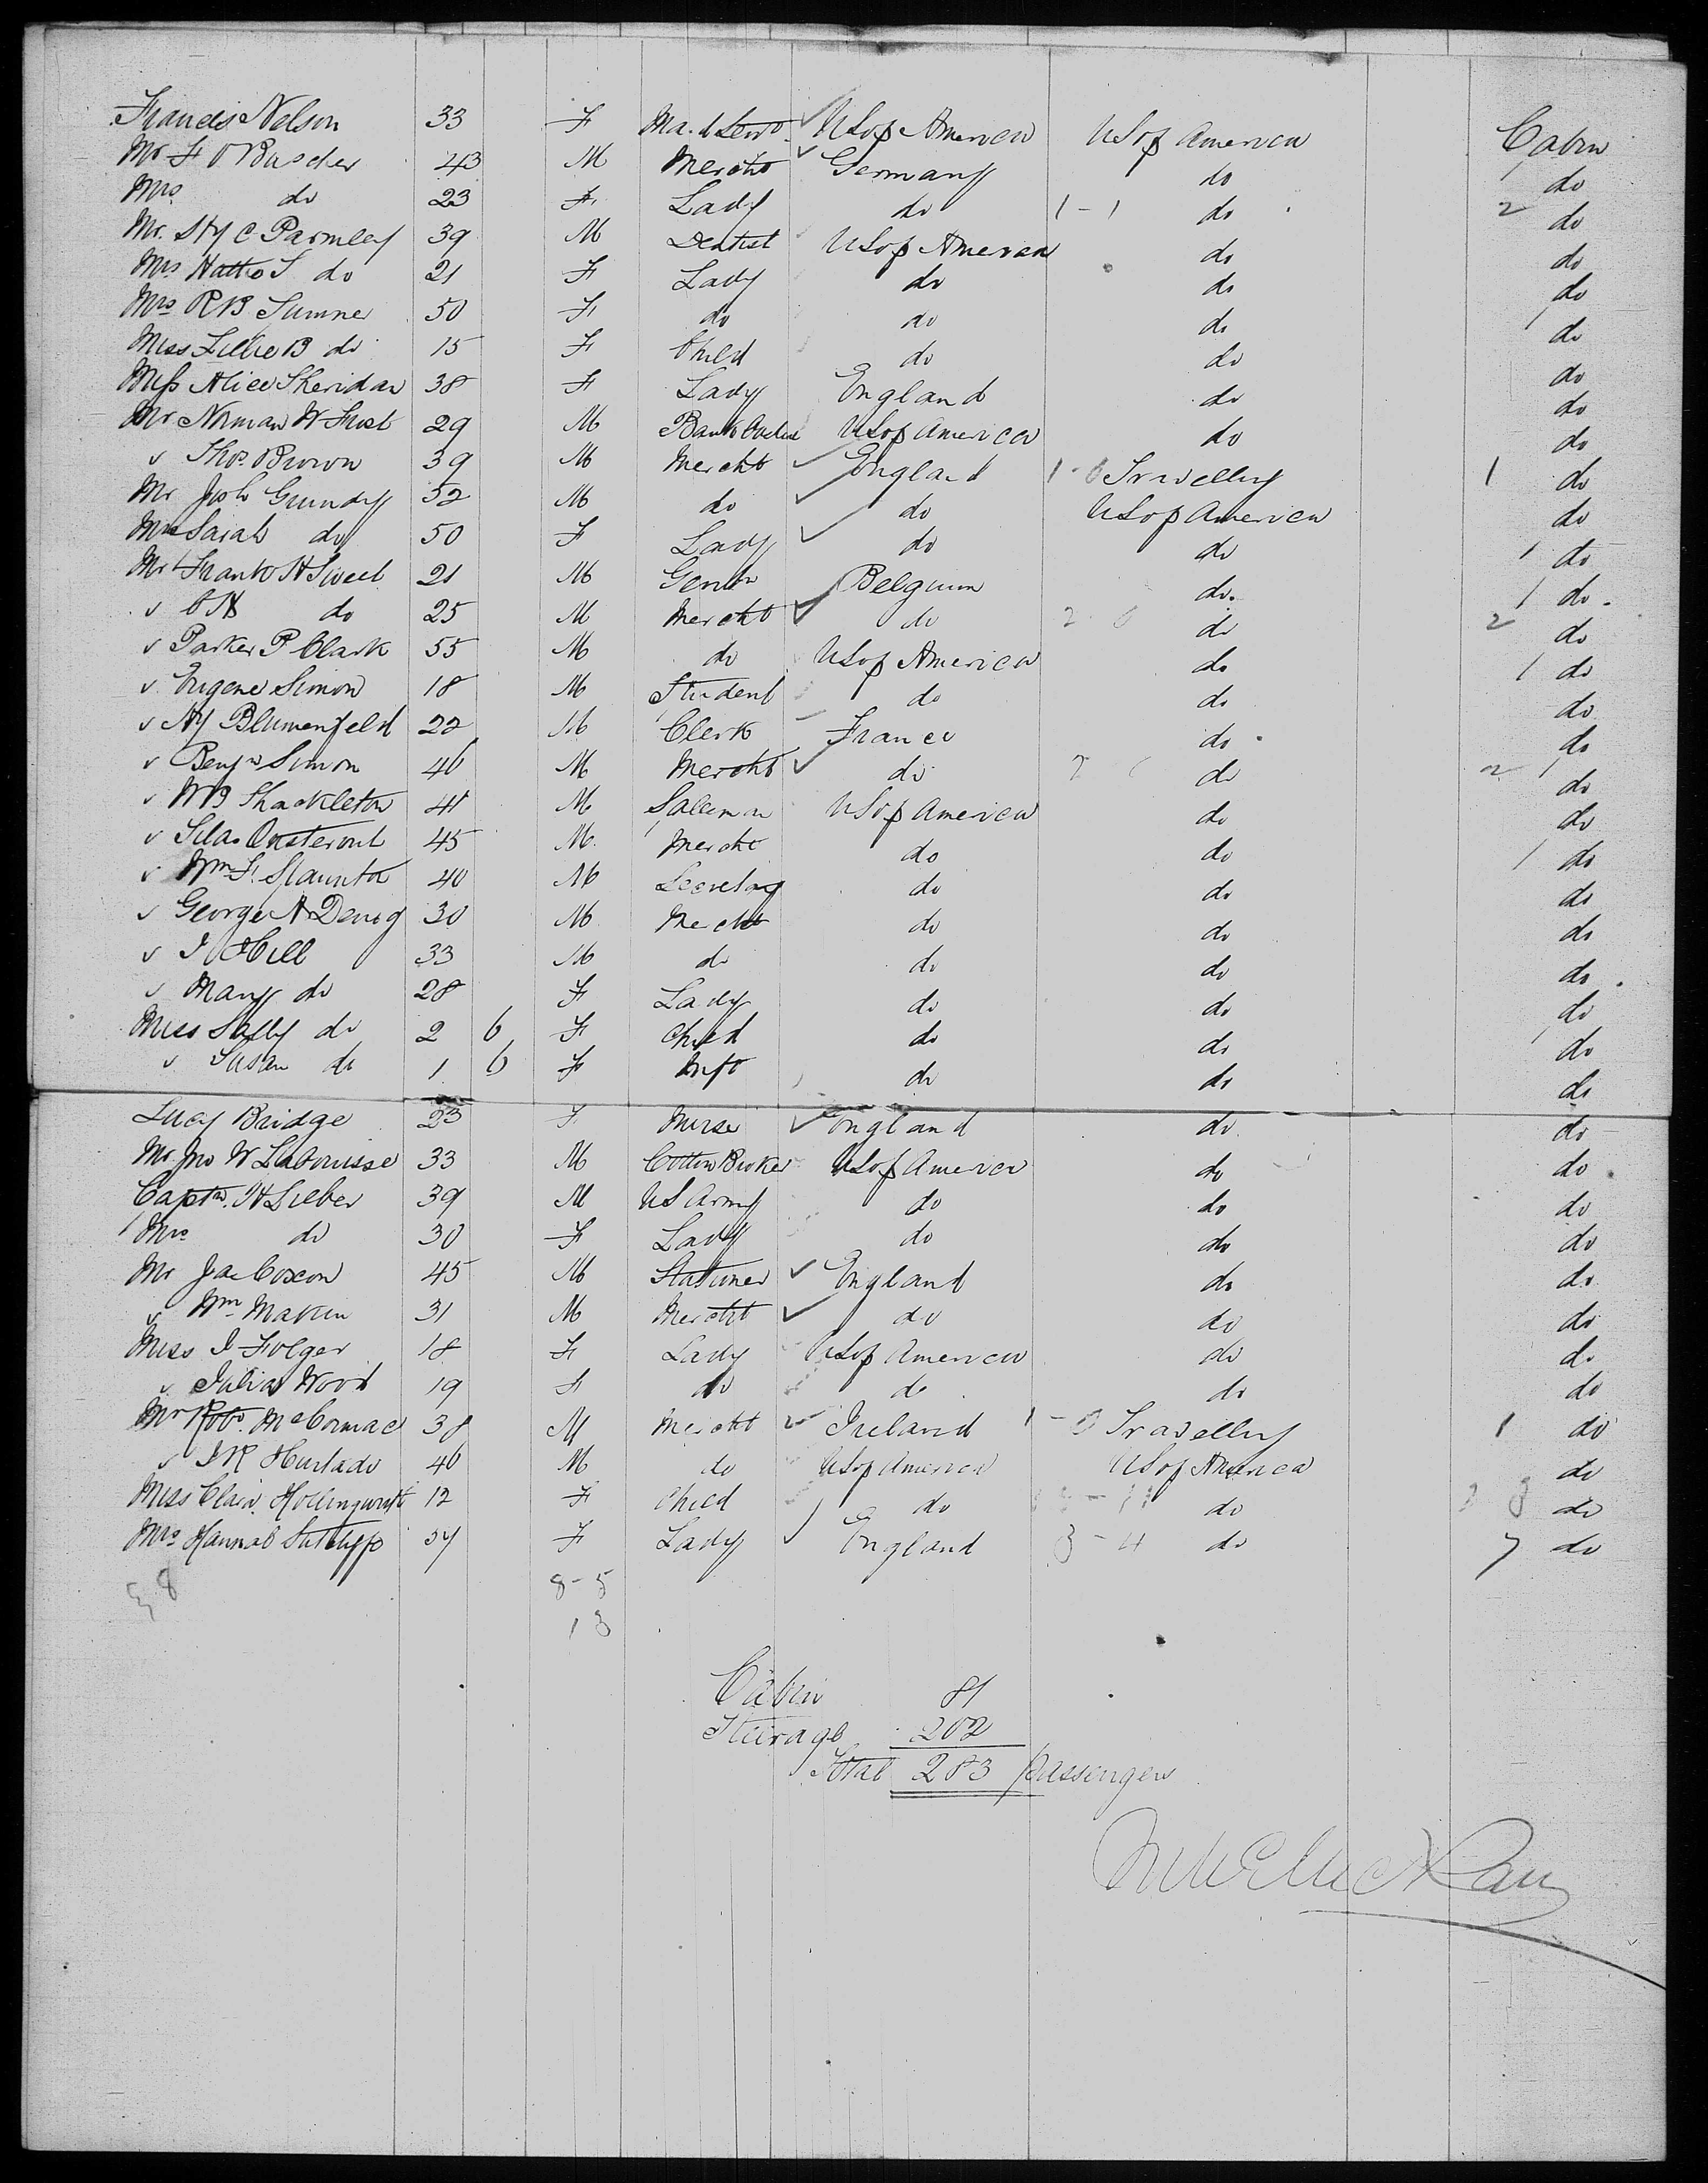 Francis Nelson 33 F Maid Servt US of America US of America Cabin
Mr F O Buscher 43 M Mercht Germany do do
Mrs do 23 F Lady do 1-1 do 2 do
Mr. Hy C Parmley 39 M Dentist US of America do do
Mrs Hattie S do 21 F Lady do do do
Mrs R B Sumner 50 F do do do do
Miss Lillie B do 15 F Child do do do
Miss Alice Sheridan 38 F Lady England do do
Mr Norman W Frost 29 M Bank US of America do do
v Thos. Brown 39 M Mercht England Travellg 1 do
Mr Josh Grundy 52 M do do US of America do
Mrs Sarah do 50 F Lady do do 1 do
Mr Frank H Sweet 21 M Gentn Belgium do. 1 do.
v C H do 25 M Mercht do 2 do 2 do
v Parker P Clark 55 M do US of America do 1 do
v Eugene Simon 18 M Student do do do
v Hy Blumenfeld 22 M Clerk France do do
v Benjn Simon 46 M Mercht do do 2 do
v W B Shackleton 41 M Salesman US of America do do
v Silas Oosterout 45 M. Mercht do do 1 do
v Wm F. Staunton 40 M Secretary do do do
v George A 30 M Mercht do do do
v J Hill 33 M do do do do.
v Mary do 28 F Lady do do do
Miss Sally do 2 6 F Child do do do
v Susan do 1 6 F Inft do do do
Lucy Bridge 23 F Nurse England do do
Mr. Jno W Labouisse 33 M Cotton Broker US of America do do
Captn. H Lieber 39 M US Army do do do
Mrs do 30 F Lady do do do
Mr Jas Coxon 45 M Stationer England do do
v Wm Makin 31 M Mercht do do do
Miss J Folger 18 F Lady US of America do do
v Julia Wood 19 F do do do do
Mr Robt. McCormac 38 M Mercht Ireland Travellg 1 do
v J R Hurtado 46 M do US of America US of America do
Miss Clara Hollingworth 12 F Child do do do
Mrs Hannah Sutcliffe 34 F Lady England 3-4 do 7 do
38 8-5
13
Cabin 81
Steerage 202
Total 283 passengers